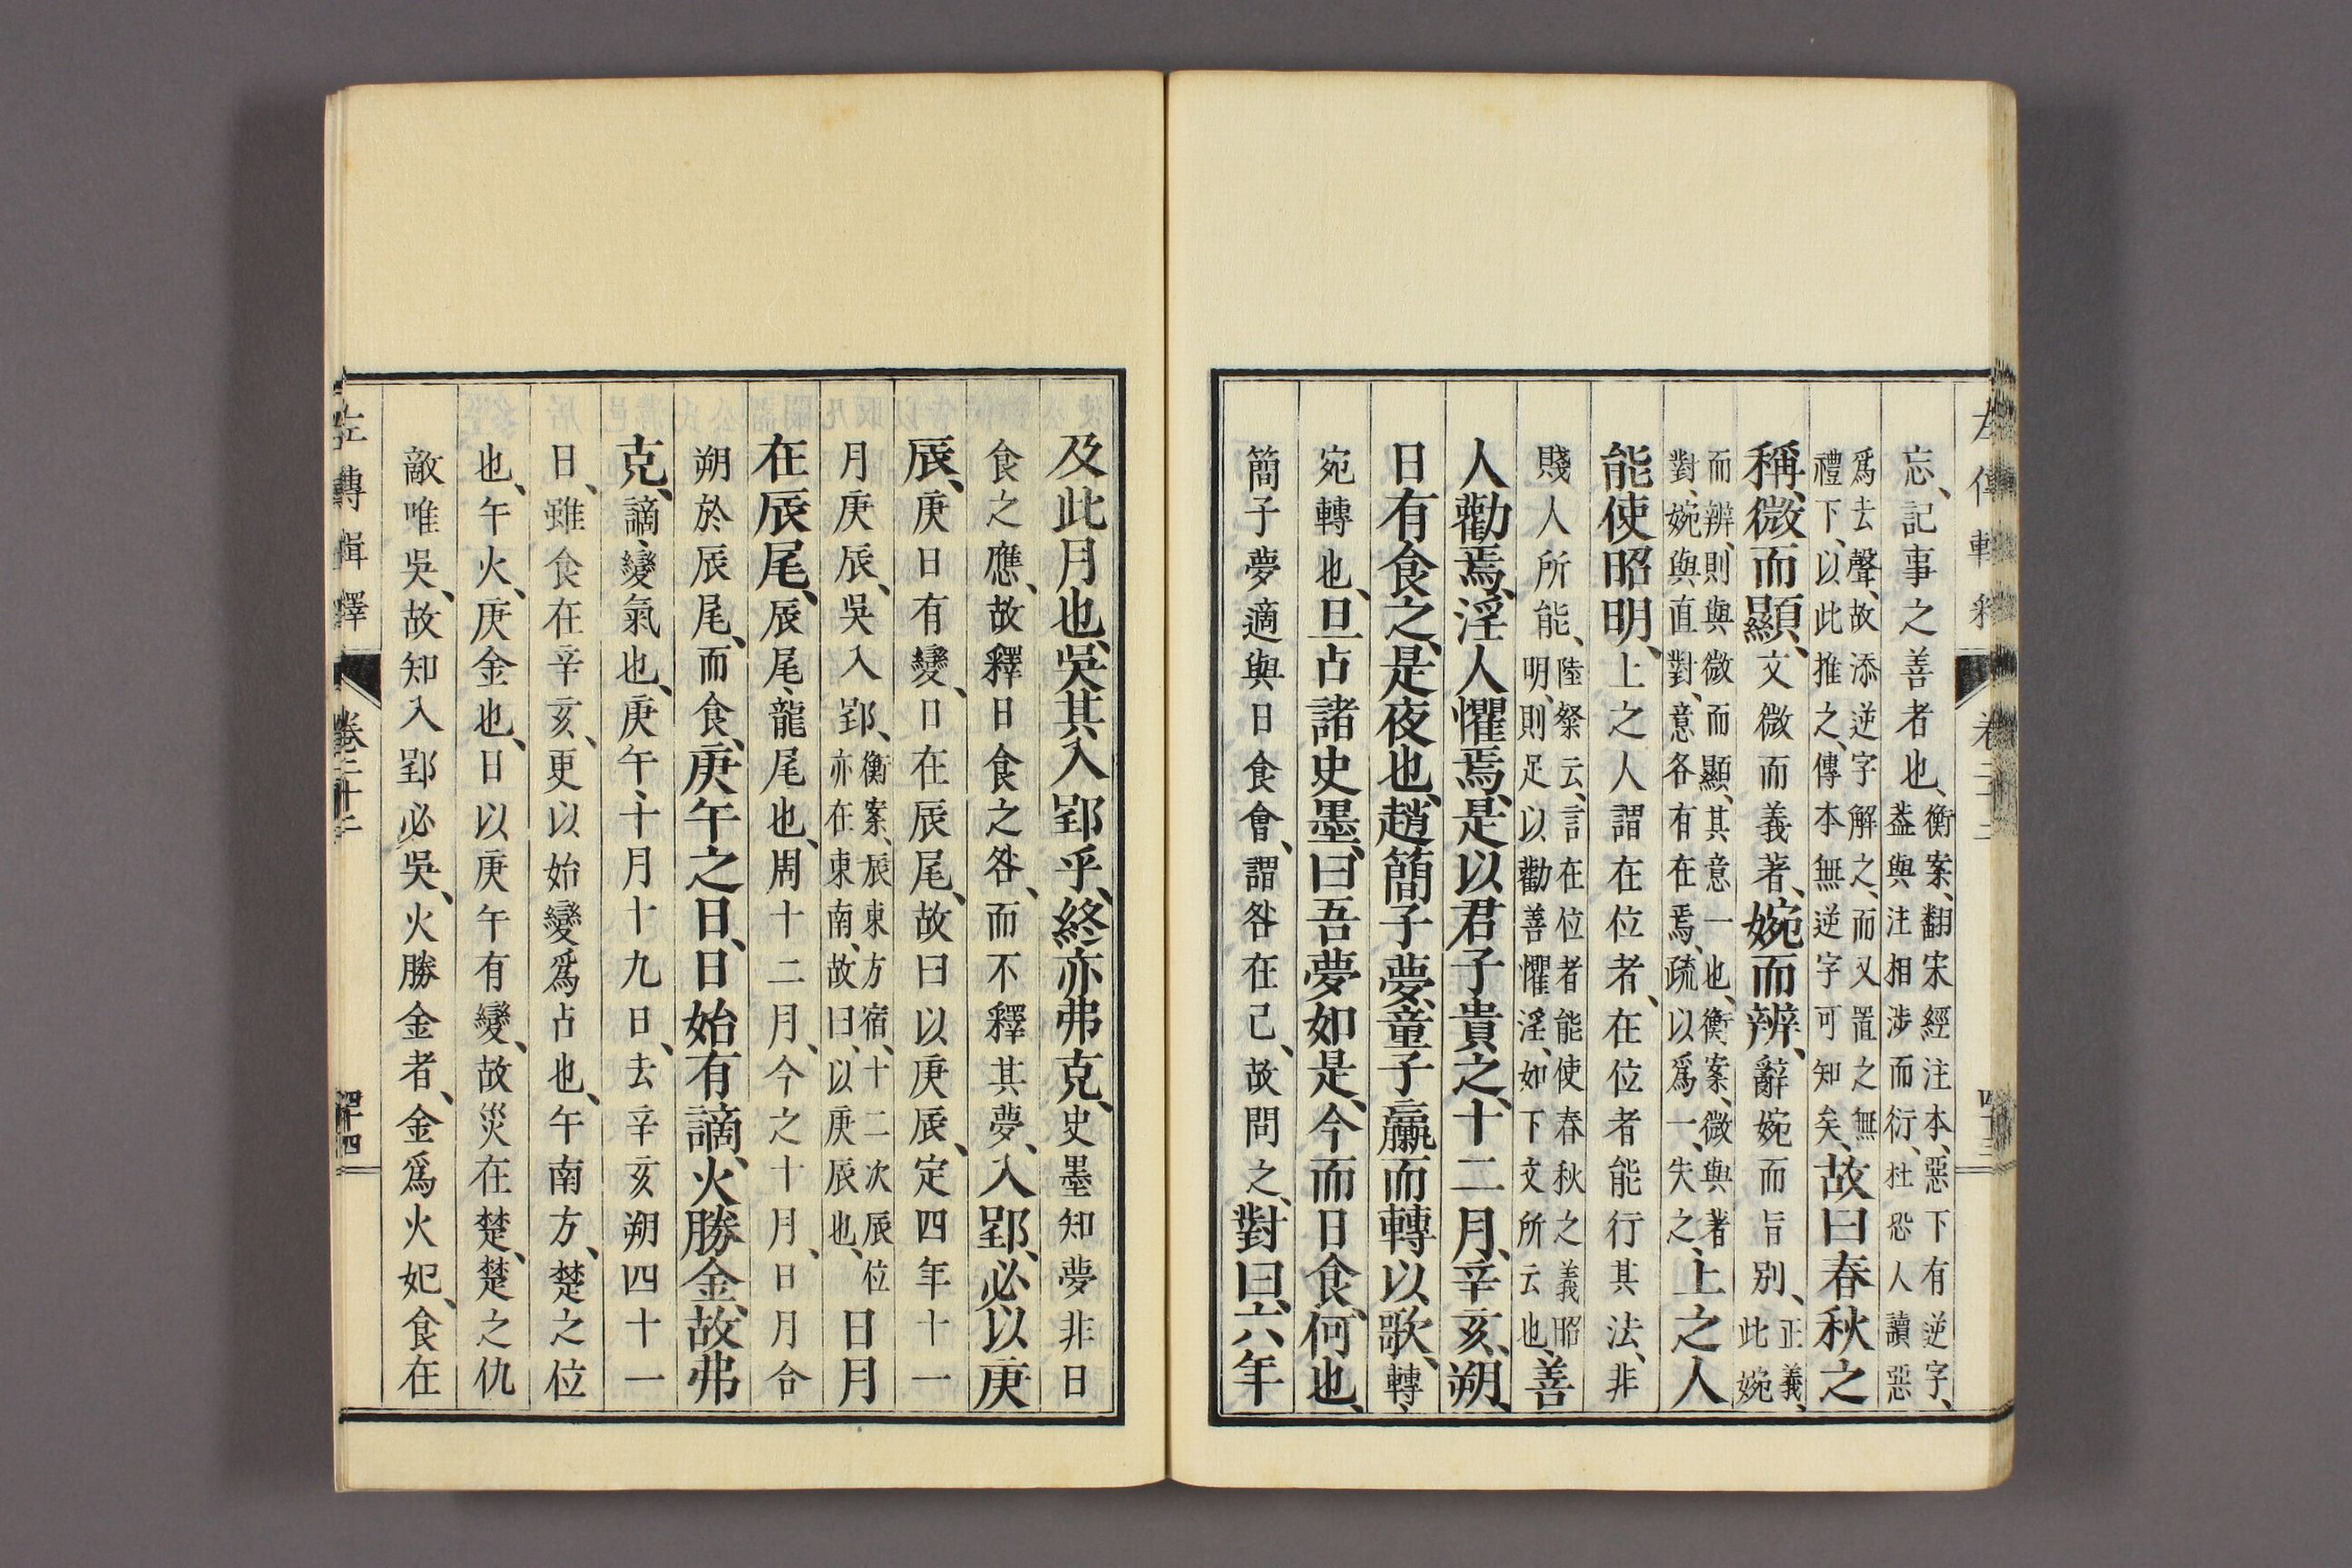 左傳輯釋 卷二十二 四十三
忘、記事之善者也、衡案、翻宋經注本、惡下有逆字、盖與注相涉而衍、杜恐人讀惡
爲去聲、故添逆字解之、而又置之無禮下、以此推之、傳本無逆字可知矣、故曰春秋之
稱、微而顯、文微而義著、婉而辨、辭婉而旨別、正義、此婉
而辨、則與微而顯、其意一也、衡案、微與著對、婉與直對、意各有在焉、疏以爲一、失之、上之人
能使昭明、上之人謂在位者、在位者能行其法、非
賤人所能、陸粲云、言在位者能使春秋之義昭明、則足以勸善懼淫、如下文所云也、善
人勸焉、淫人懼焉、是以君子貴之、十二月、辛亥、朔、
日有食之、是夜也、趙簡子夢、童子羸而轉以歌、轉、
宛轉也、旦占諸史墨、曰吾夢如是、今而日食、何也、
簡子夢適與日食會、謂咎在己、故問之、對曰、六年
及此月也、吳其入郢乎、終亦弗克、史墨知夢非日
食之應、故釋日食之咎、而不釋其夢、入郢、必以庚
辰、庚日有變、日在辰尾、故曰以庚辰、定四年十一
月庚辰、吳入郢、衡案、辰東方宿、十二次辰位亦在東南、故曰、以庚辰也、日月
在辰尾、辰尾、龍尾也、周十二月、今之十月、日月合
朔於辰尾、而食、庚午之日、日始有謫、火勝金、故弗
克、謫、變氣也、庚午、十月十九日、去辛亥朔四十一
日、雖食在辛亥、更以始變爲占也、午南方、楚之位
也、午火、庚金也、日以庚午有變、故災在楚、楚之仇
敵唯吳、故知入郢必吳、火勝金者、金爲火妃、食在
左傳輯釋 卷二十二 四十四